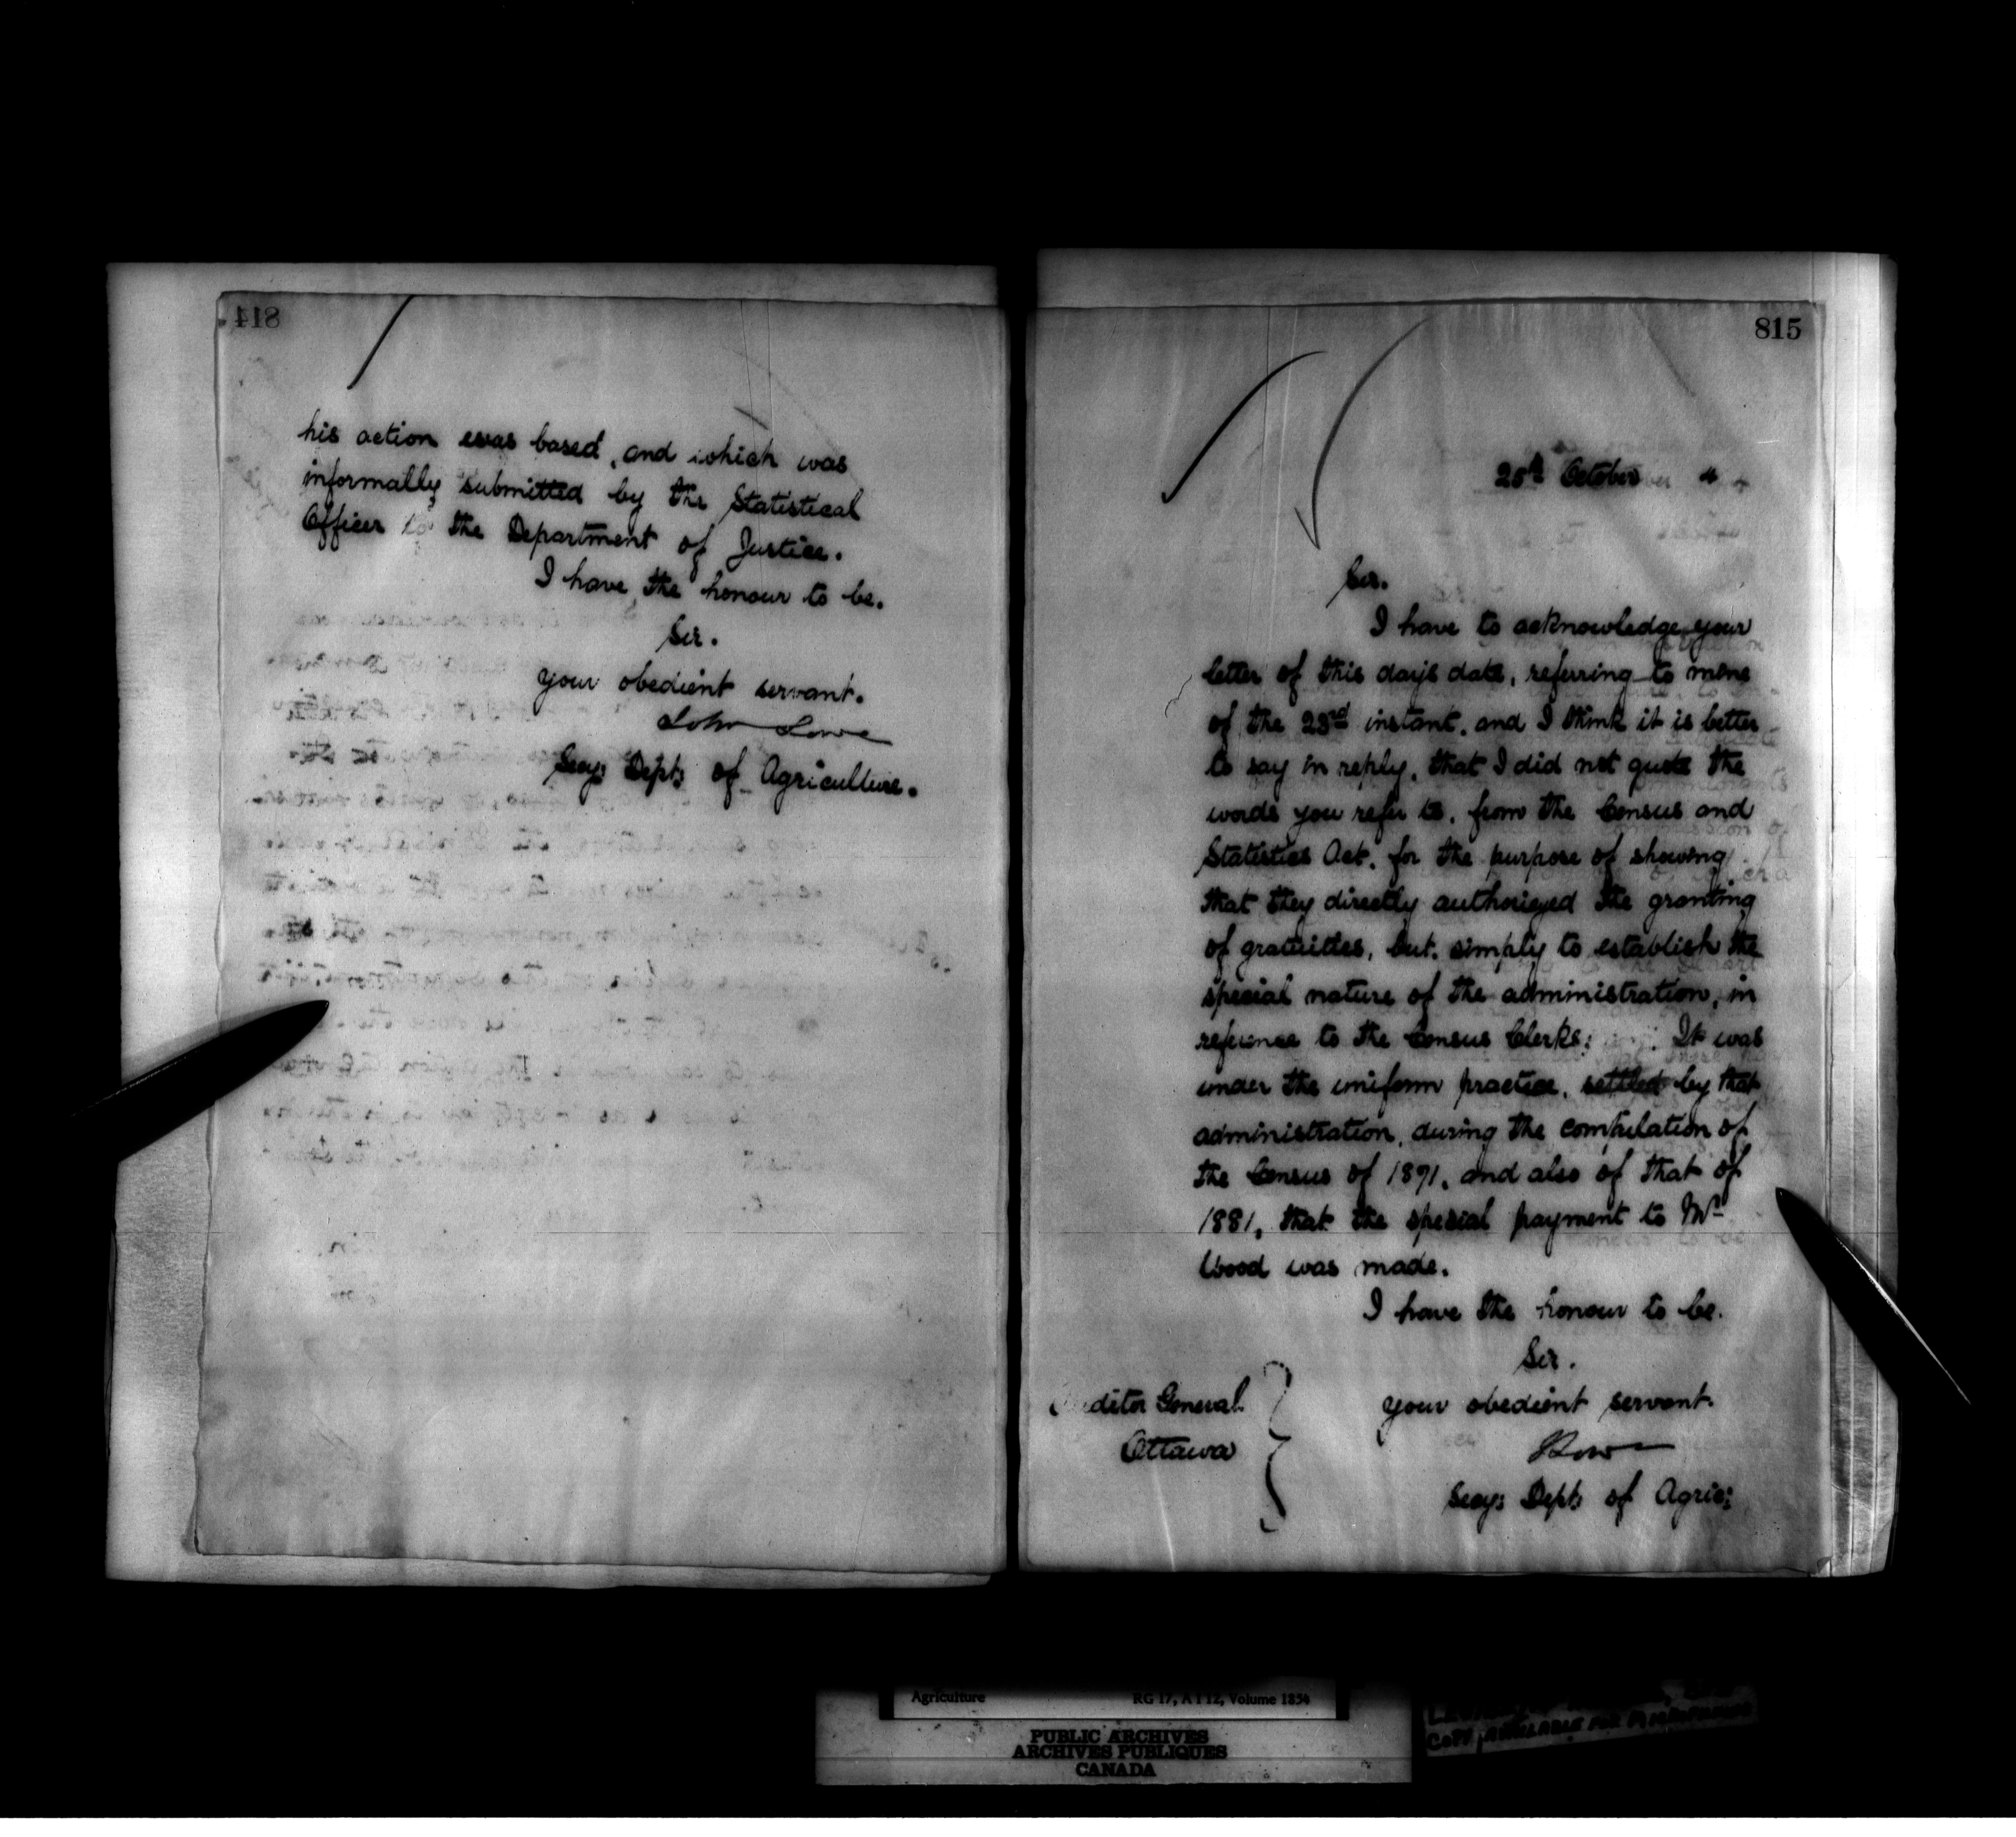 814
his action was based, and which was
informally submitted by the Statistical
Officer to the Department of Justice.
I have the honour to be.
Sir.
your obedient servant.
John Lowe
Secy: Dept: of Agriculture.
815
25th October "
Sir.
I have to acknowledge your
letter of this day's date, referring to mine
of the 23rd instant, and I think it is better
to say in reply, that I did not quote the
words you refer to, from the Census and
Statistics Act, for the purpose of showing
that they directly authorized the granting
of gratuities, but, simply to establish the
special nature of the administration, in
reference to the Census Clerks: It was
under the uniform practice, settled by that
administration, during the compilation of
the Census of 1871, and also of that of
1881, that the special payment to Mr
Wood was made.
I have the honour to be.
Sir.
your obedient servant.
JLowe
Secy: Dept: of Agric:
Auditor General
Ottawa
Agriculture RG 17, A I 12, Volume 1834
PUBLIC ARCHIVES
ARCHIVES PUBLIQUES
CANADA
COPY AVAILABLE FOR